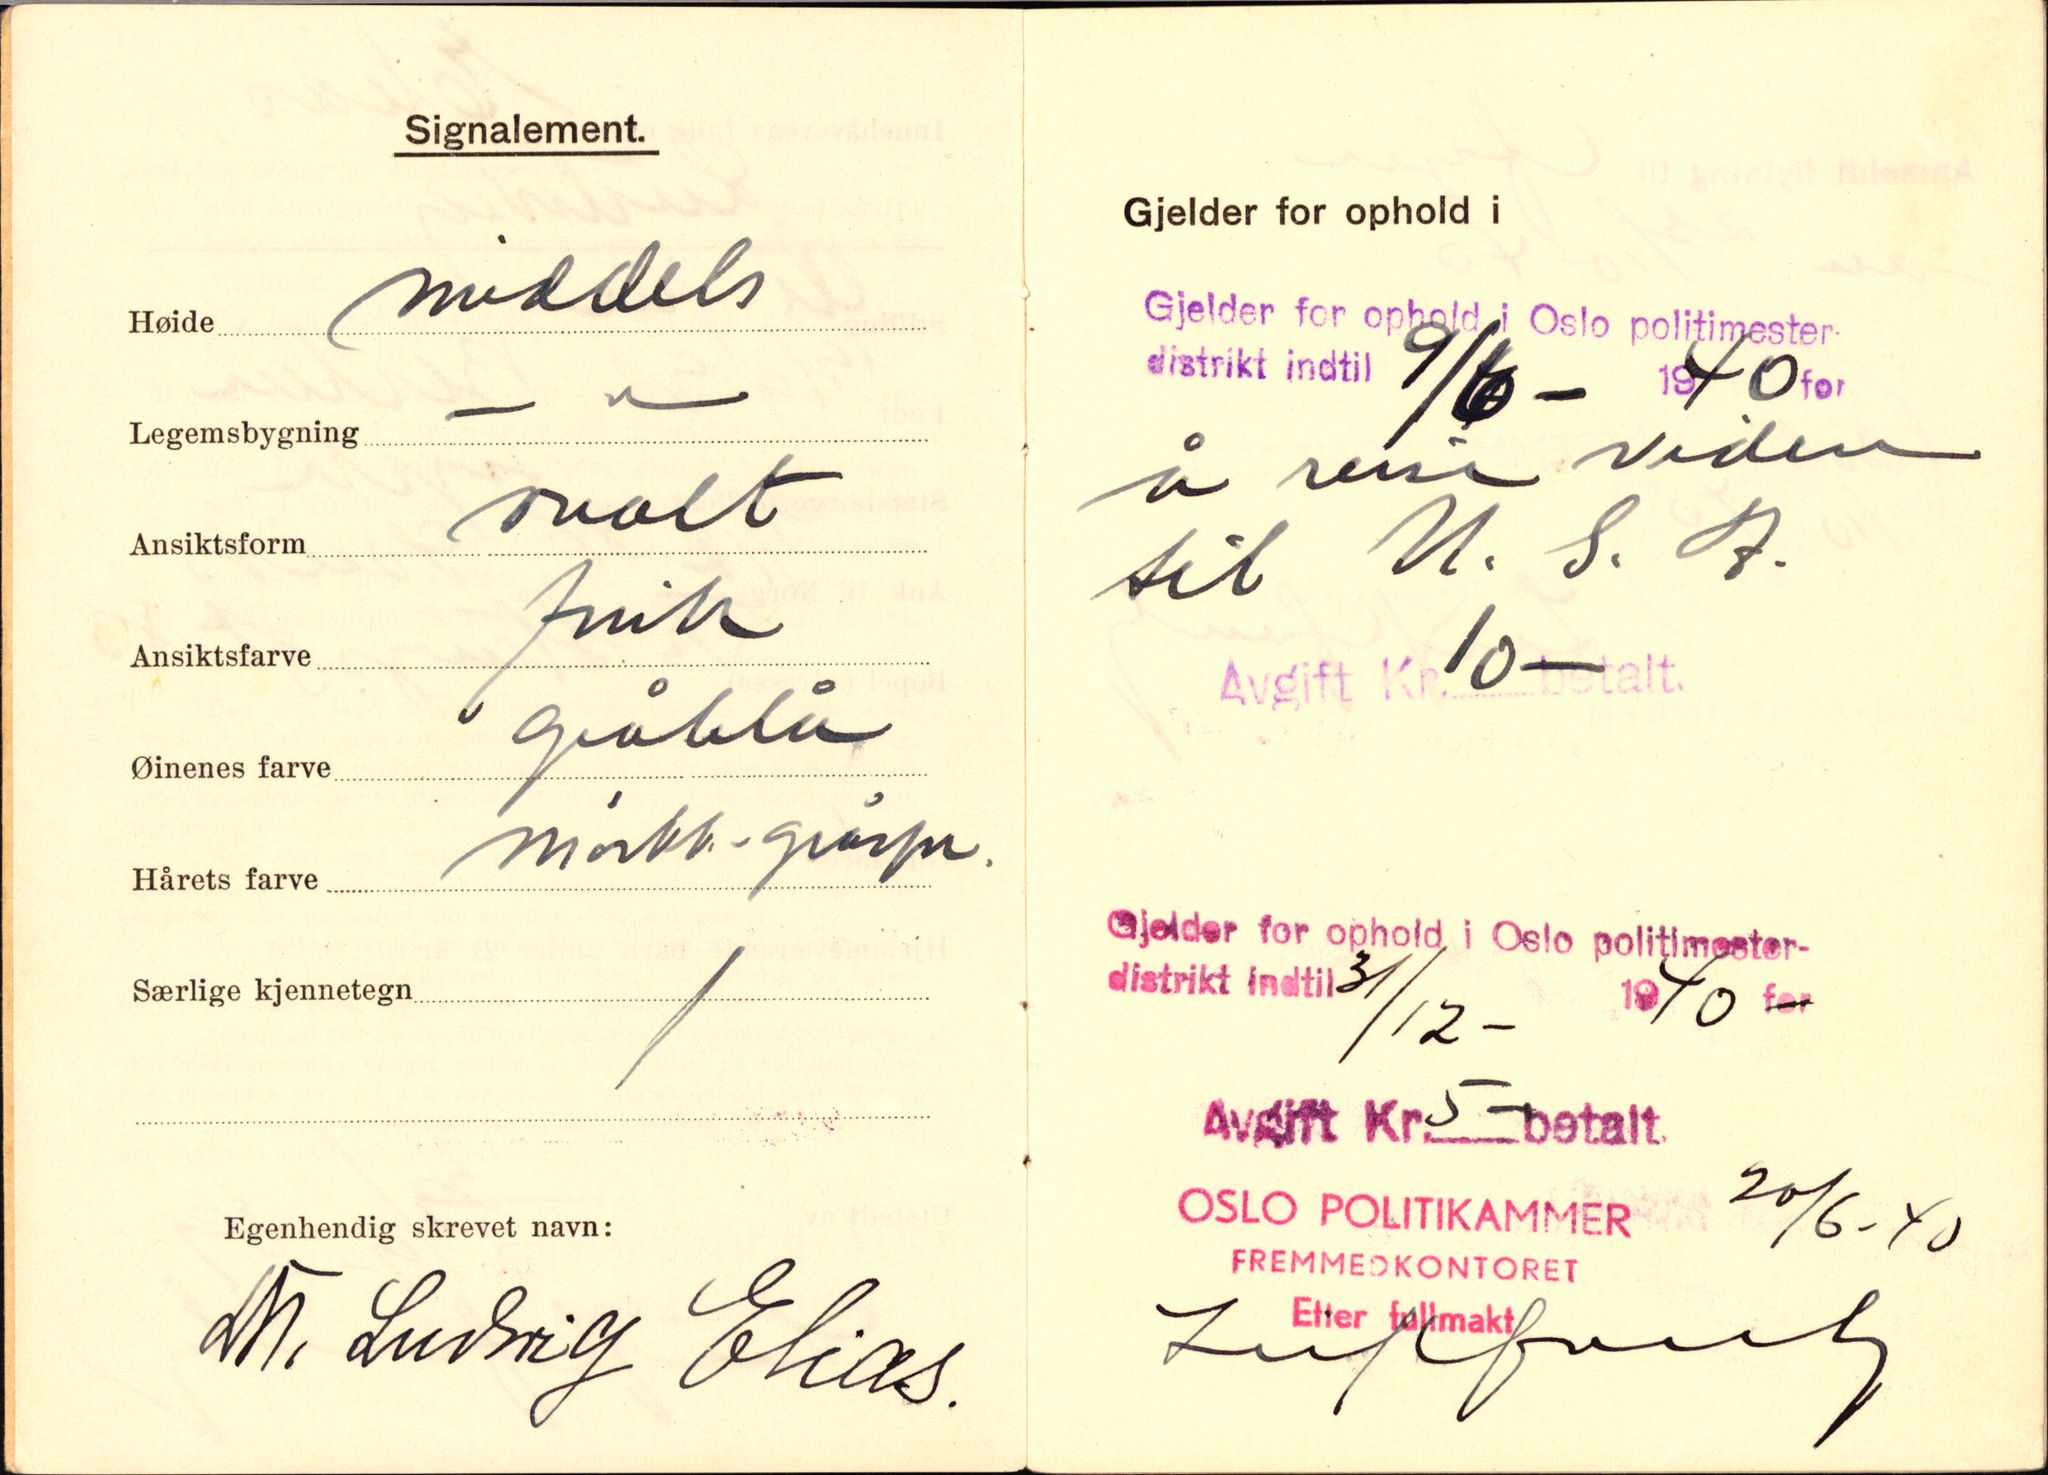 Signalement.
Høide middels
Legemsbygning — " —
Ansiktsform ovalt
Ansiktsfarve frisk
Øinenes farve gråblå
Hårets farve mørkk.-gråspr.
Særlige kjennetegn /
Egenhendig skrevet navn:
Ludwig Elias.
Gjelder for ophold i
Gjelder for ophold i Oslo politimester-
distrikt indtil 9/6 - 1940 for
å reise videre
til U. S. A.
Avgift Kr. 10— betalt.
Gjelder for ophold i Oslo politimester-
distrikt indtil 31/12 - 1940 for
Avgift Kr. 5— betalt.
OSLO POLITIKAMMER 20/6-40
FREMMEDKONTORET
Etter fullmakt